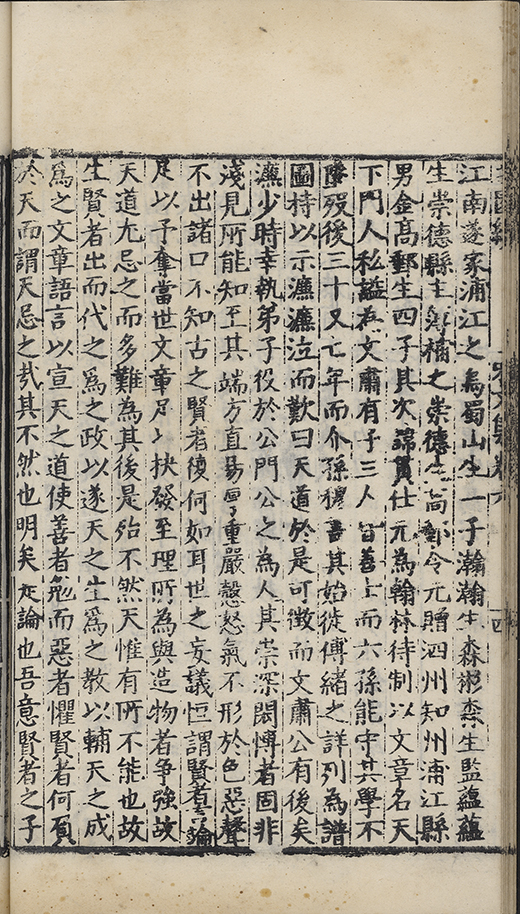 江南遂家浦江之烏蜀山生一子瀚瀚生森彬森生監蘊蘊
生崇德縣主簿橚橚之崇德生高郵令元贈泗州知州浦江縣
男金高郵生四子其次諱貫仕元為翰林待制以文章名天
下門人私謚為文肅有子三人皆善士而六孫能守其學不
墜歿後三十又七年而介孫穆書其始徙傳緒之詳列為譜
圖持以示濂濂泣而歎曰天道於是可徵而文肅公有後矣
濂少時幸執弟子役於公門公之為人其崇深閎博者固非
淺見所能知至其端方直易厚重嚴慤怒氣不形於色惡聲
不出諸口不知古之賢者復何如耳世之妄議恒謂賢者論
足以予奪當世文章足以抉發至理所為與造物者爭強故
天道尤忌之而多難為其後是殆不然天惟有所不能也故
生賢者出而代之為之政以遂天之生為之教以輔天之成
為之文章語言以宣天之道使善者勉而惡者懼賢者何負
於天而謂天忌之哉其不然也明矣是論也吾意賢者之子